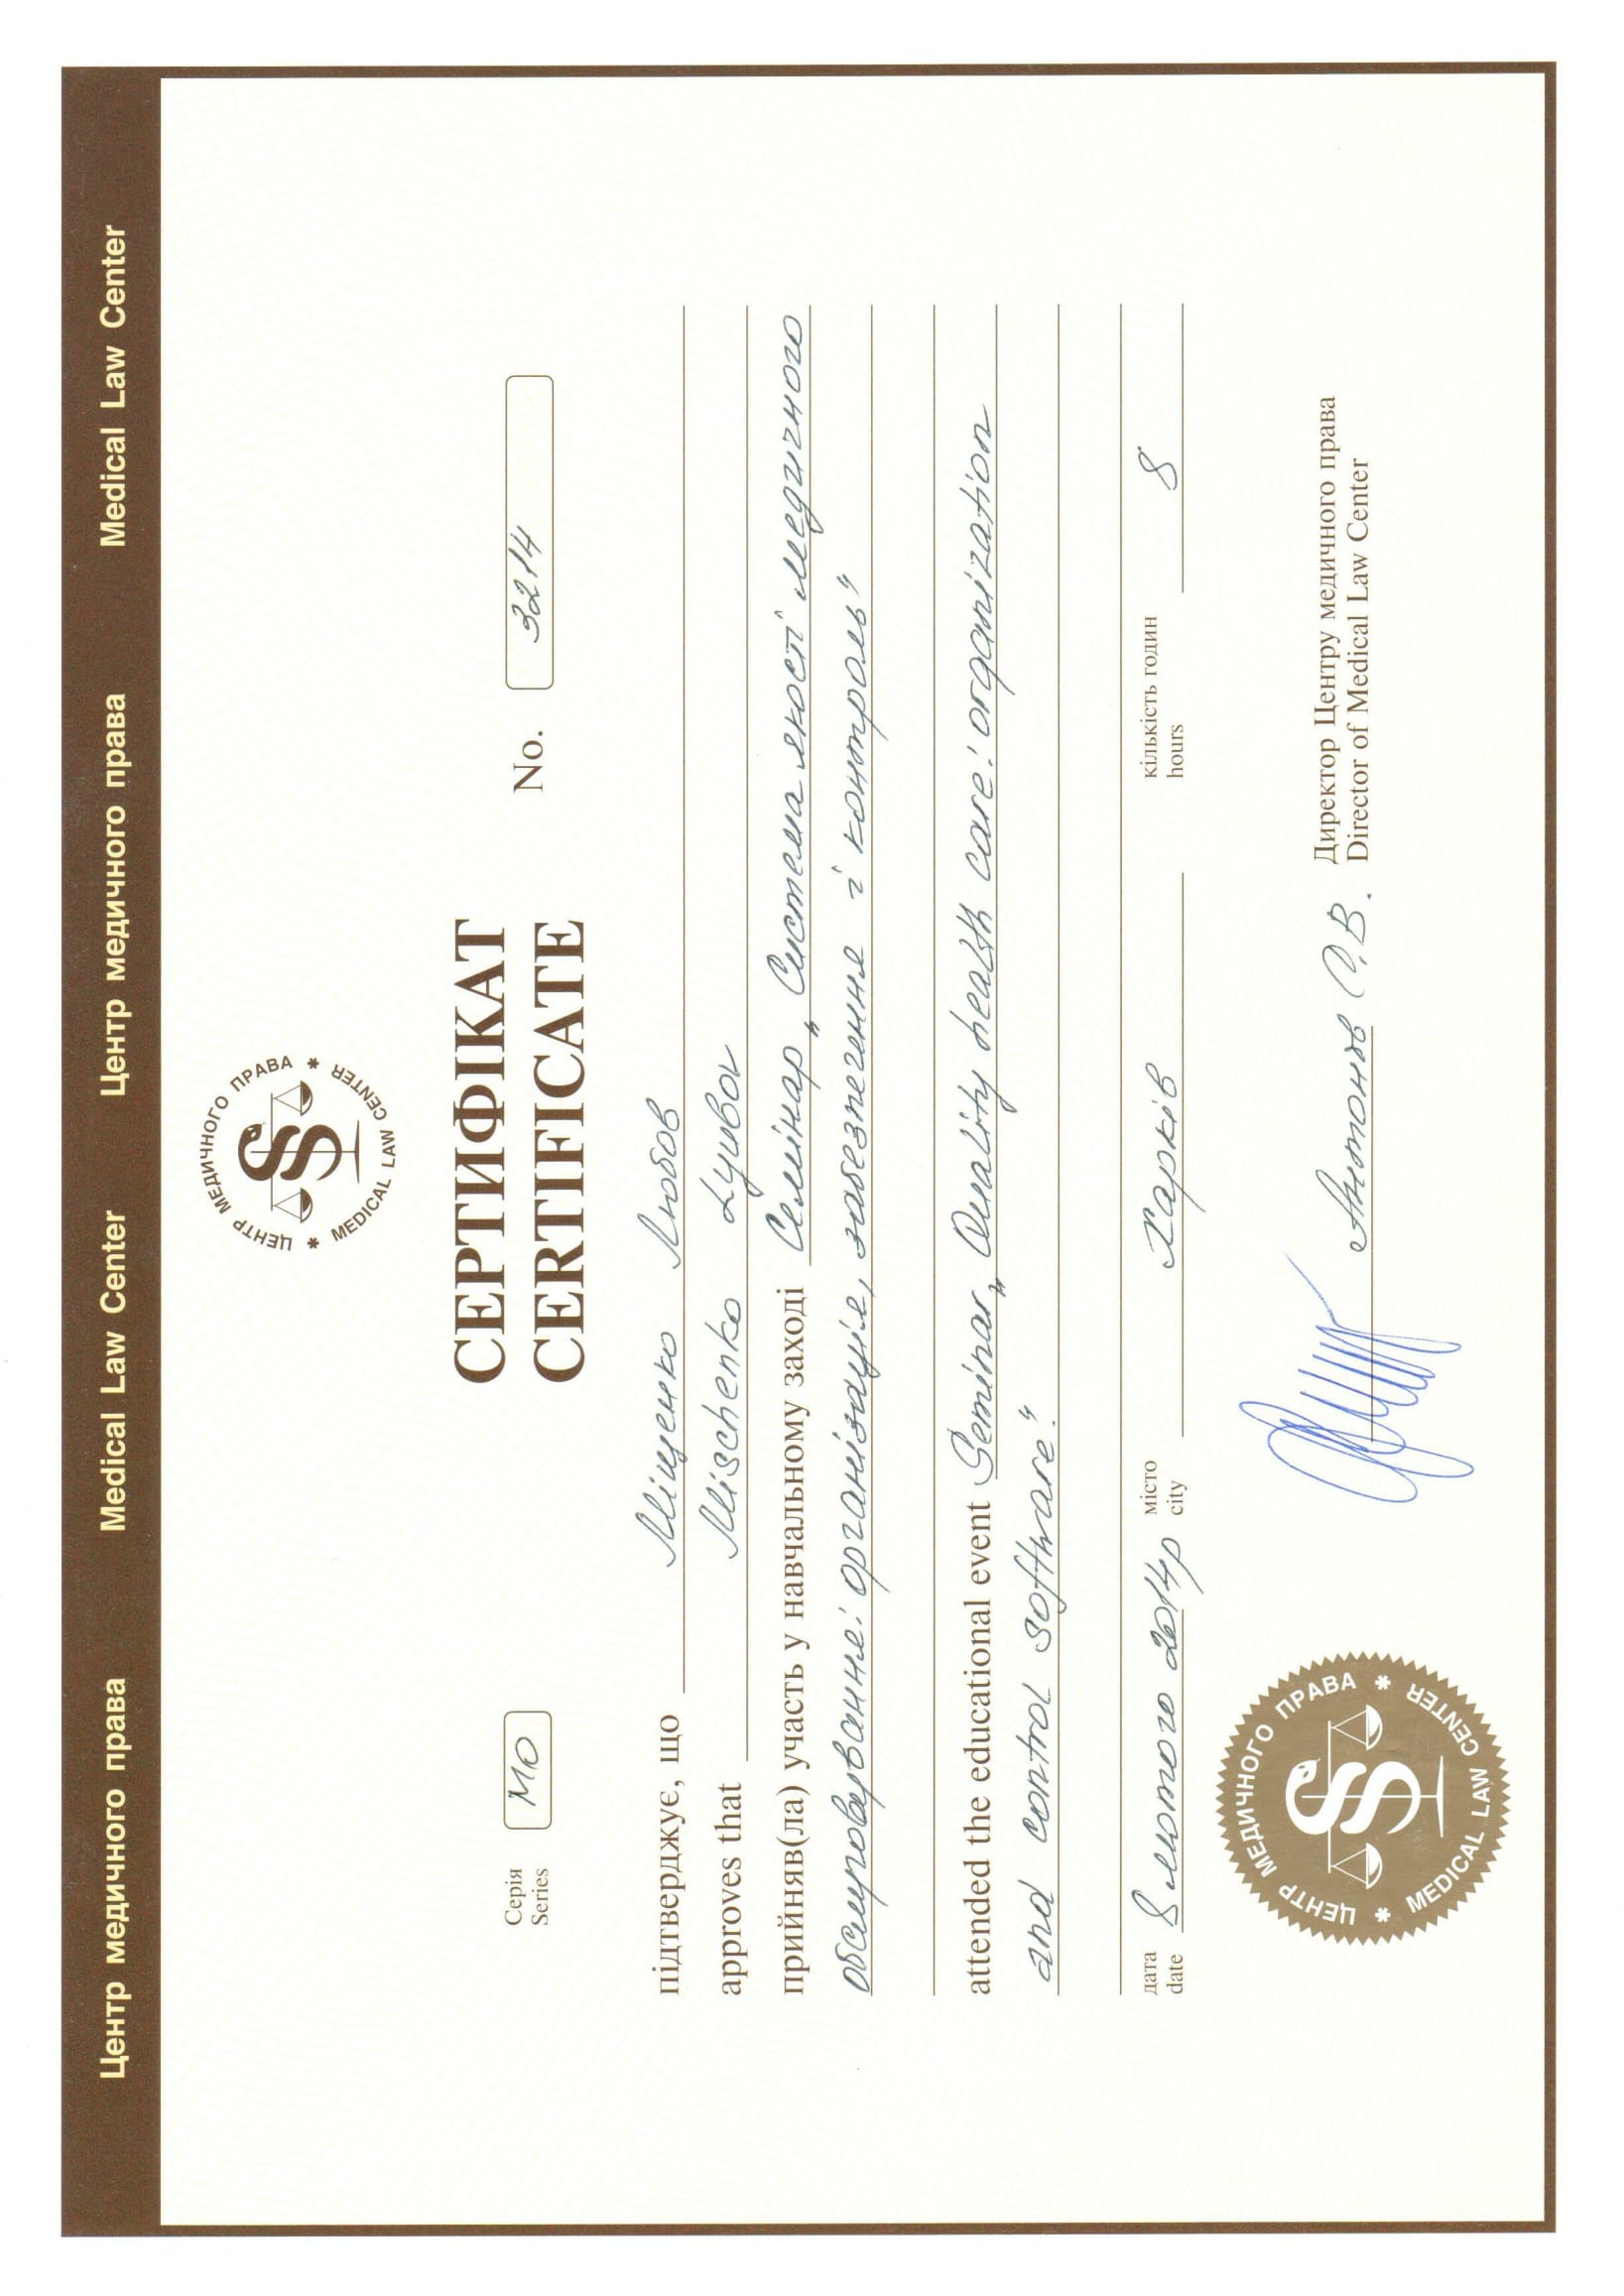 Центр медичного права Medical Law Center Центр медичного права Medical Law Center
ЦЕНТР МЕДИЧНОГО ПРАВА * MEDICAL LAW CENTER *
СЕРТИФІКАТ
Серія
Series
МЮ
No. 3214
CERTIFICATE
підтверджує, що Міщенко Любов
approves that Mischenko Lyubov
прийняв(ла) участь у навчальному заході Семінар „Система якості медичного
обслуговування: організація, забезпечення і контроль"
attended the educational event Seminar „Quality health care: organization
and control software."
дата
date
8 лютого 2014р
місто
city
Харків
кількість годин
hours
8
ЦЕНТР МЕДИЧНОГО ПРАВА * MEDICAL LAW CENTER *
Антонов С.В.
Директор Центру медичного права
Director of Medical Law Center